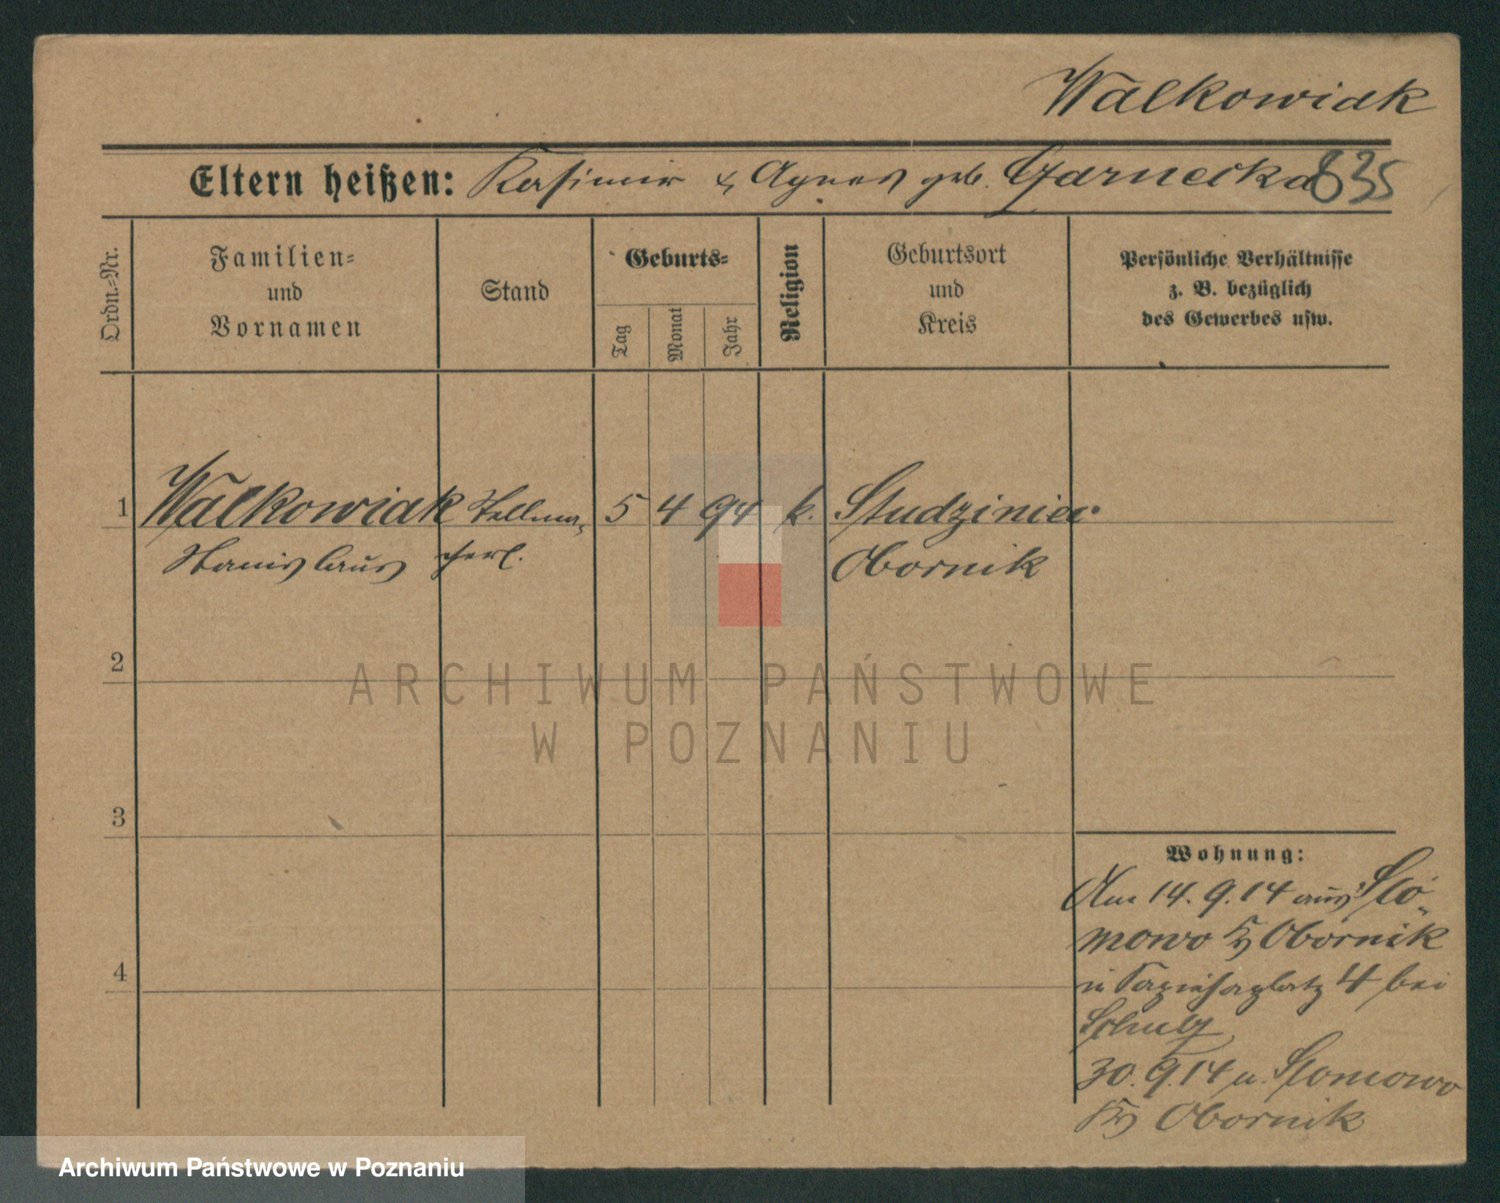 Walkowiak
Eltern heißen: Kasimir & Agnes geb. Garnecka 835
Ordn.-Nr.
Familien-
und
Vornamen
Stand
Geburts-
Tag
Monat
Jahr
Religion
Geburtsort
und
Kreis
Persönliche Verhältnisse
z. B. bezüglich
des Gewerbes usw.
1 Walkowiak Stellma- 5 4 94 k. Studziniec
Stanislaus cherl. Obornik
2
ARCHIWUM PAŃSTWOWE
W POZNANIU
3
4
Wohnung:
Am 14.9.14 aus Slo-
mowo Krs Obornik
n 4 bei
Schulz
30.9.14 n. Slomowo
Krs Obornik
Archiwum Państwowe w Poznaniu